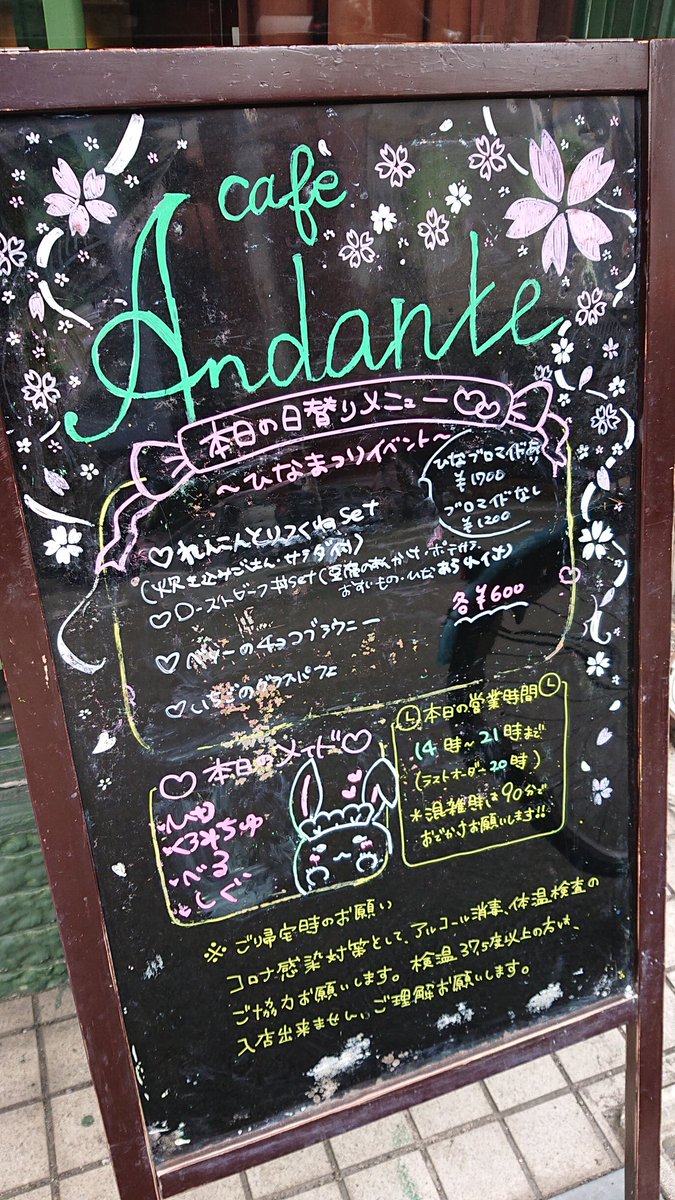 cafe
Andante
本日の日替りメニュー
～ひなまつりイベント～
ひなブロマイド
¥1700
ブロマイドなし
¥1200
♡れんこんとりつくねset
(炊き込みごはん・サラダ
♡ローストビーフ丼set
おすいもの・ひなあられ付
各¥600
♡ベリーのチョコブラウニー
♡いちごのグラスパフェ
♡本日のメイド♡
べる
しぐ
本日の営業時間
14時～21時まで
(ラストオーダー20時)
*混雑時は90分で
おでかけお願いします!!
※ご帰宅時のお願い
コロナ感染対策として、アルコール消毒、体温検査の
ご協力お願いします。検温37.5度以上の方は、
入店出来ません。ご理解お願いします。